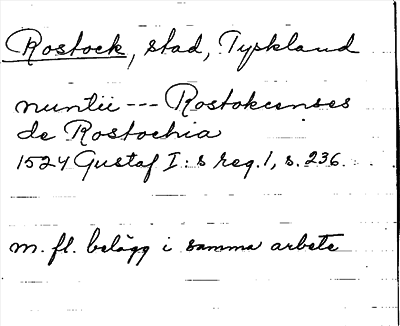 Rostock, stad, Tyskland
nuntii --- Rostokcenses
de Rostochia
1524 Gustaf I:s reg. 1, s. 236.
m. fl. belägg i samma arbete